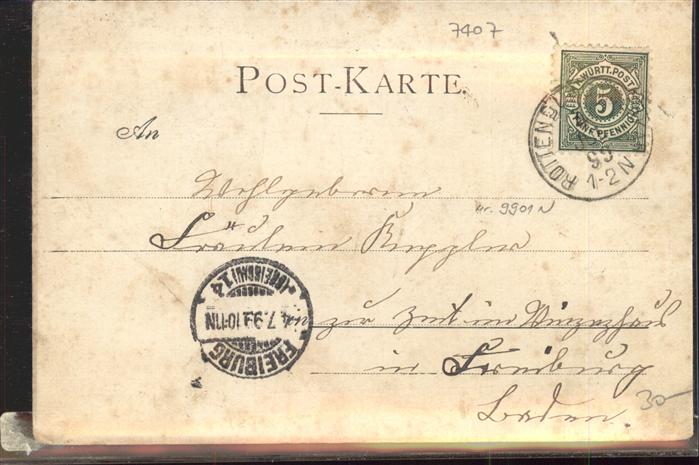 7407
K. WÜRTT. POST
5
FÜNF PFENNIG
POST-KARTE.
99
1-2 N
An
Wohlgeboren
nr. 9901 N
Fräulein Keppler
FREIBURG
4.7.99.10-11N
(BREISGAU) 14
zur Zeit im
in Freiburg
Baden.
30-